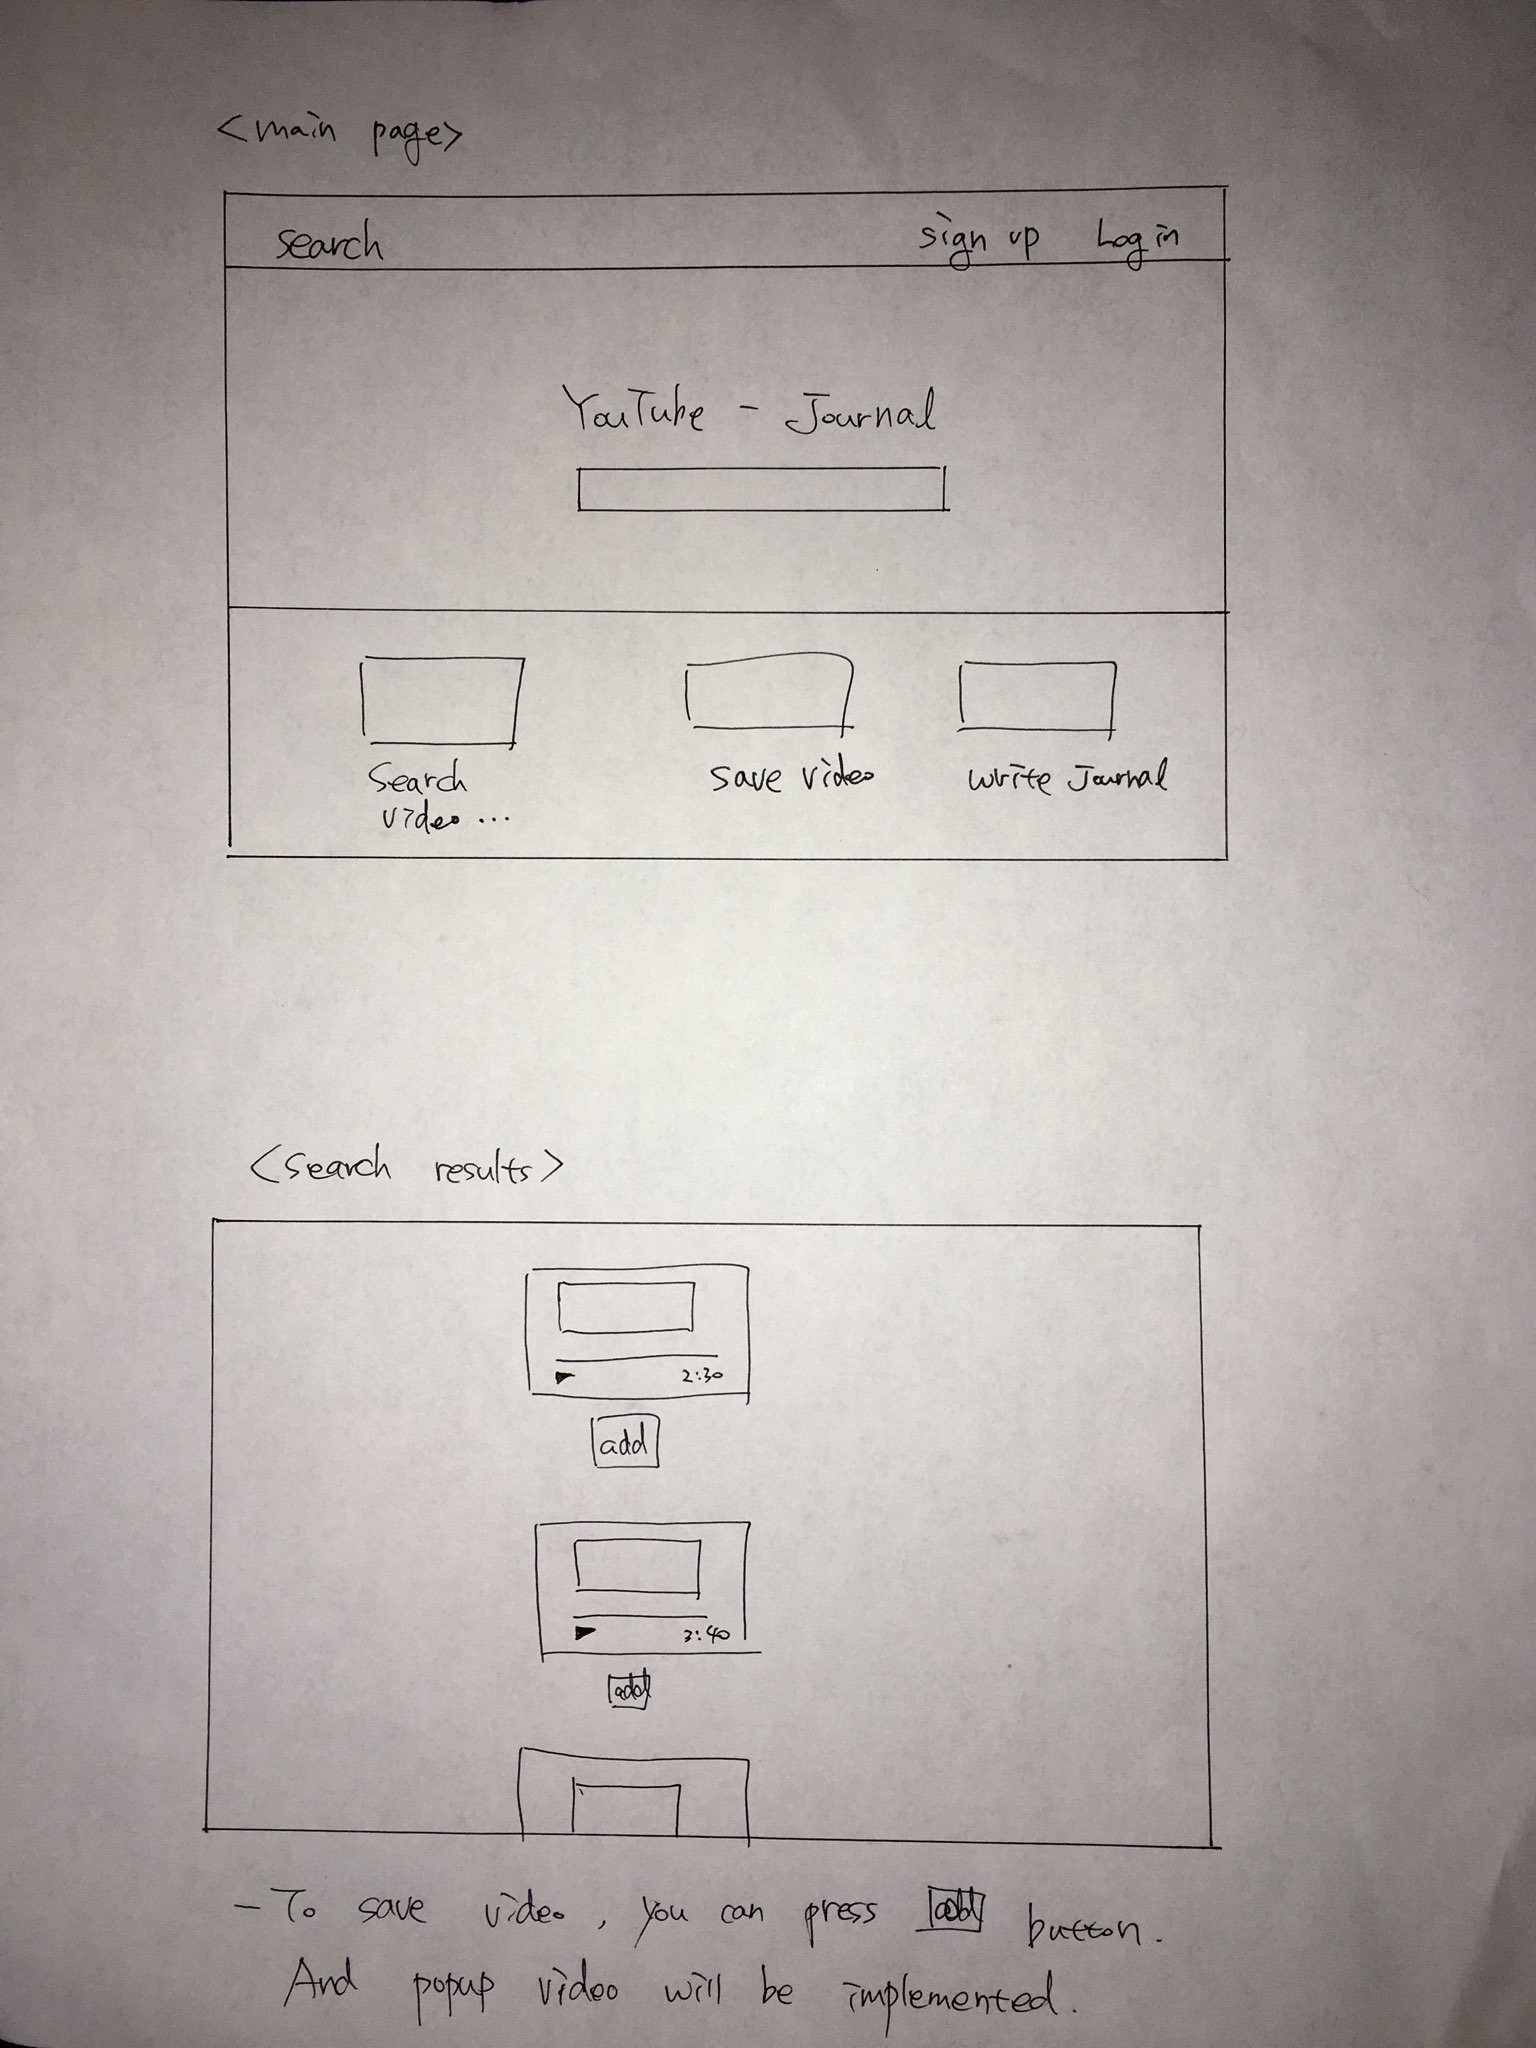 <main page>
search sign up Log in
YouTube - Journal
Search save video write Journal
video ...
<Search results>
2:30
add
3:40
add
- To save video, you can press add button.
And popup video will be implemented.